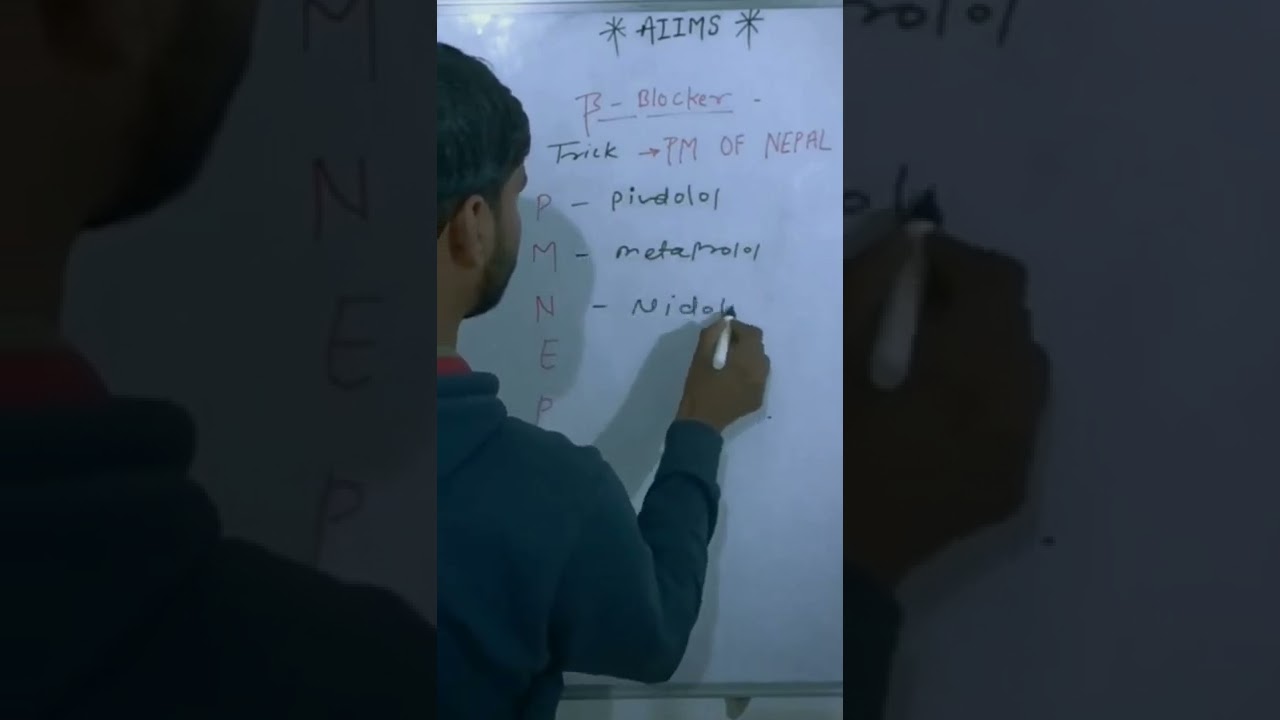 * AIIMS *
β - Blocker -
Trick → PM OF NEPAL
P - Pindolol
M - metaprolol
N - Nidol
E
P